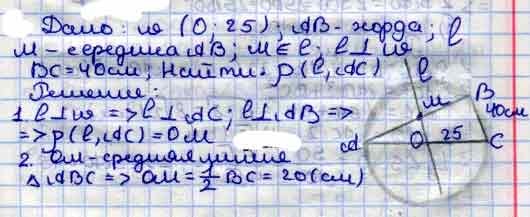 Дано: ω (O; 25); AB - хорда;
M - середина AB; M ∈ l; l ⊥ ω
BC = 40 см; Найти: ρ(l, AC)
Решение:
1. l ⊥ ω => l ⊥ AC; l ⊥ AB =>
=> ρ(l, AC) = OM
2. OM - средняя линия
△ ABC => OM = 1/2 BC = 20 (см)
l
l
M
B
40см
A
O
25
C